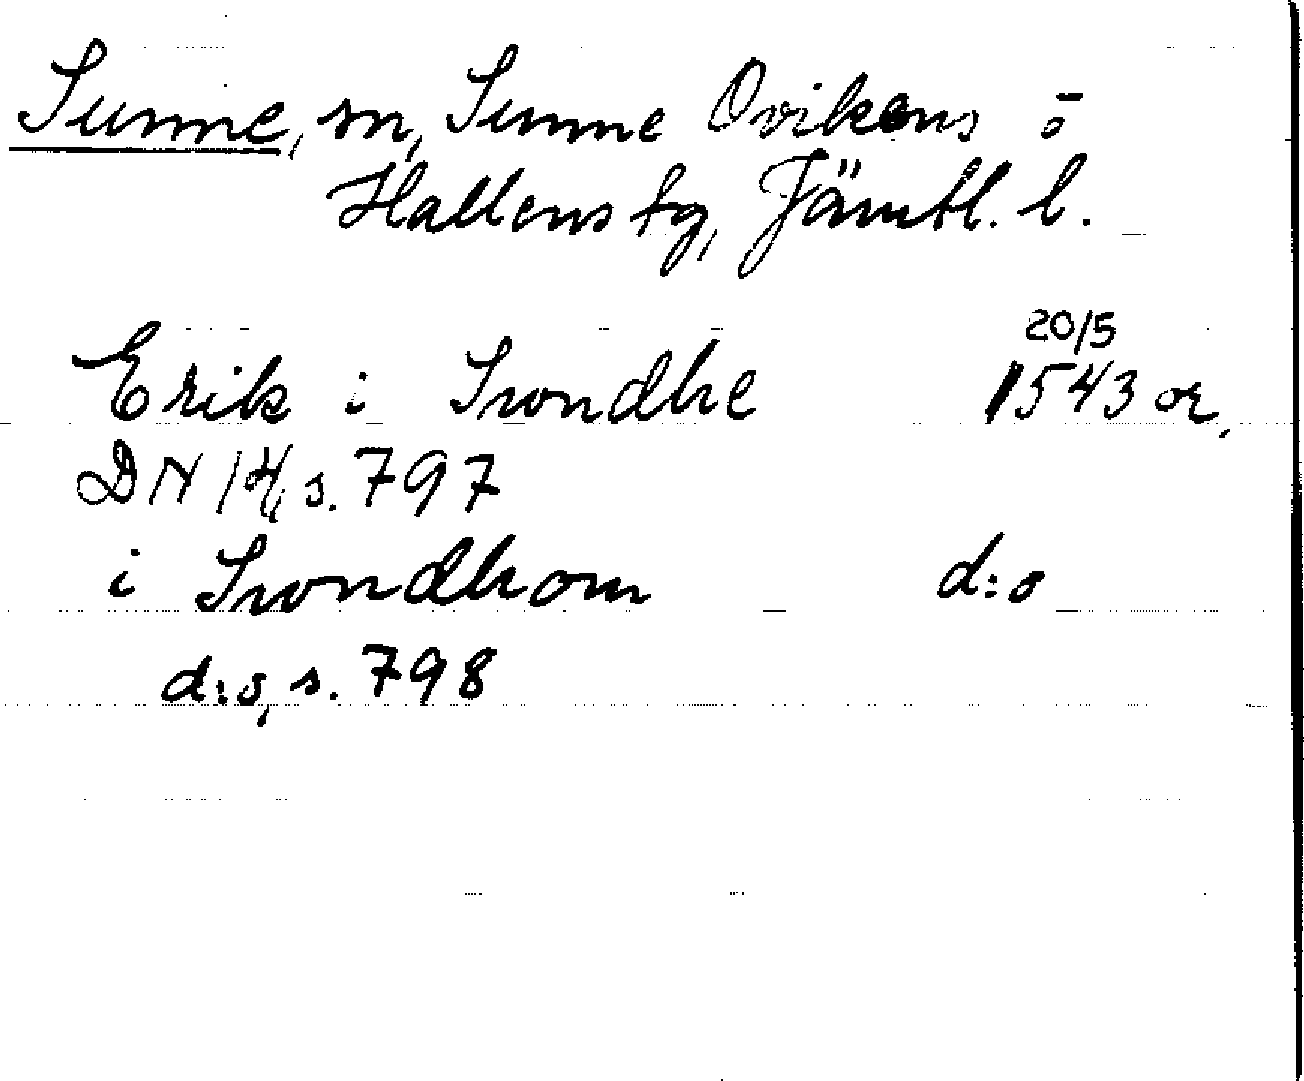 Sunne, sn, Sunne Ovikens o
Hallens tg, Jämtl. l.
20/5
Erik i Swondhe 1543 or,
DN 14, s. 797
i Swondhom d:o
d:o, s. 798